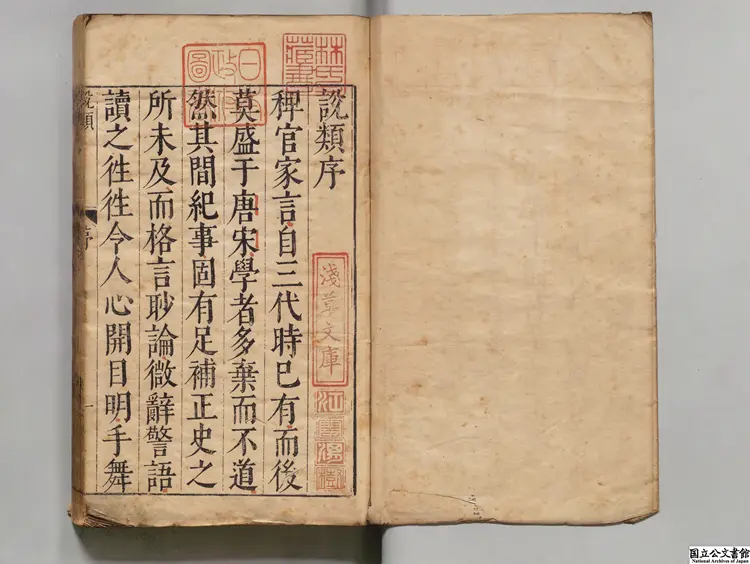 說類序
稗官家言自三代時已有而後
莫盛于唐宋學者多棄而不道
然其間紀事固有足補正史之
所未及而格言眇論微辭警語
讀之徃徃令人心開目明手舞
說類
序
一
林氏藏書
日本政府圖書
淺草文庫
江雲渭樹
国立公文書館
National Archives of Japan